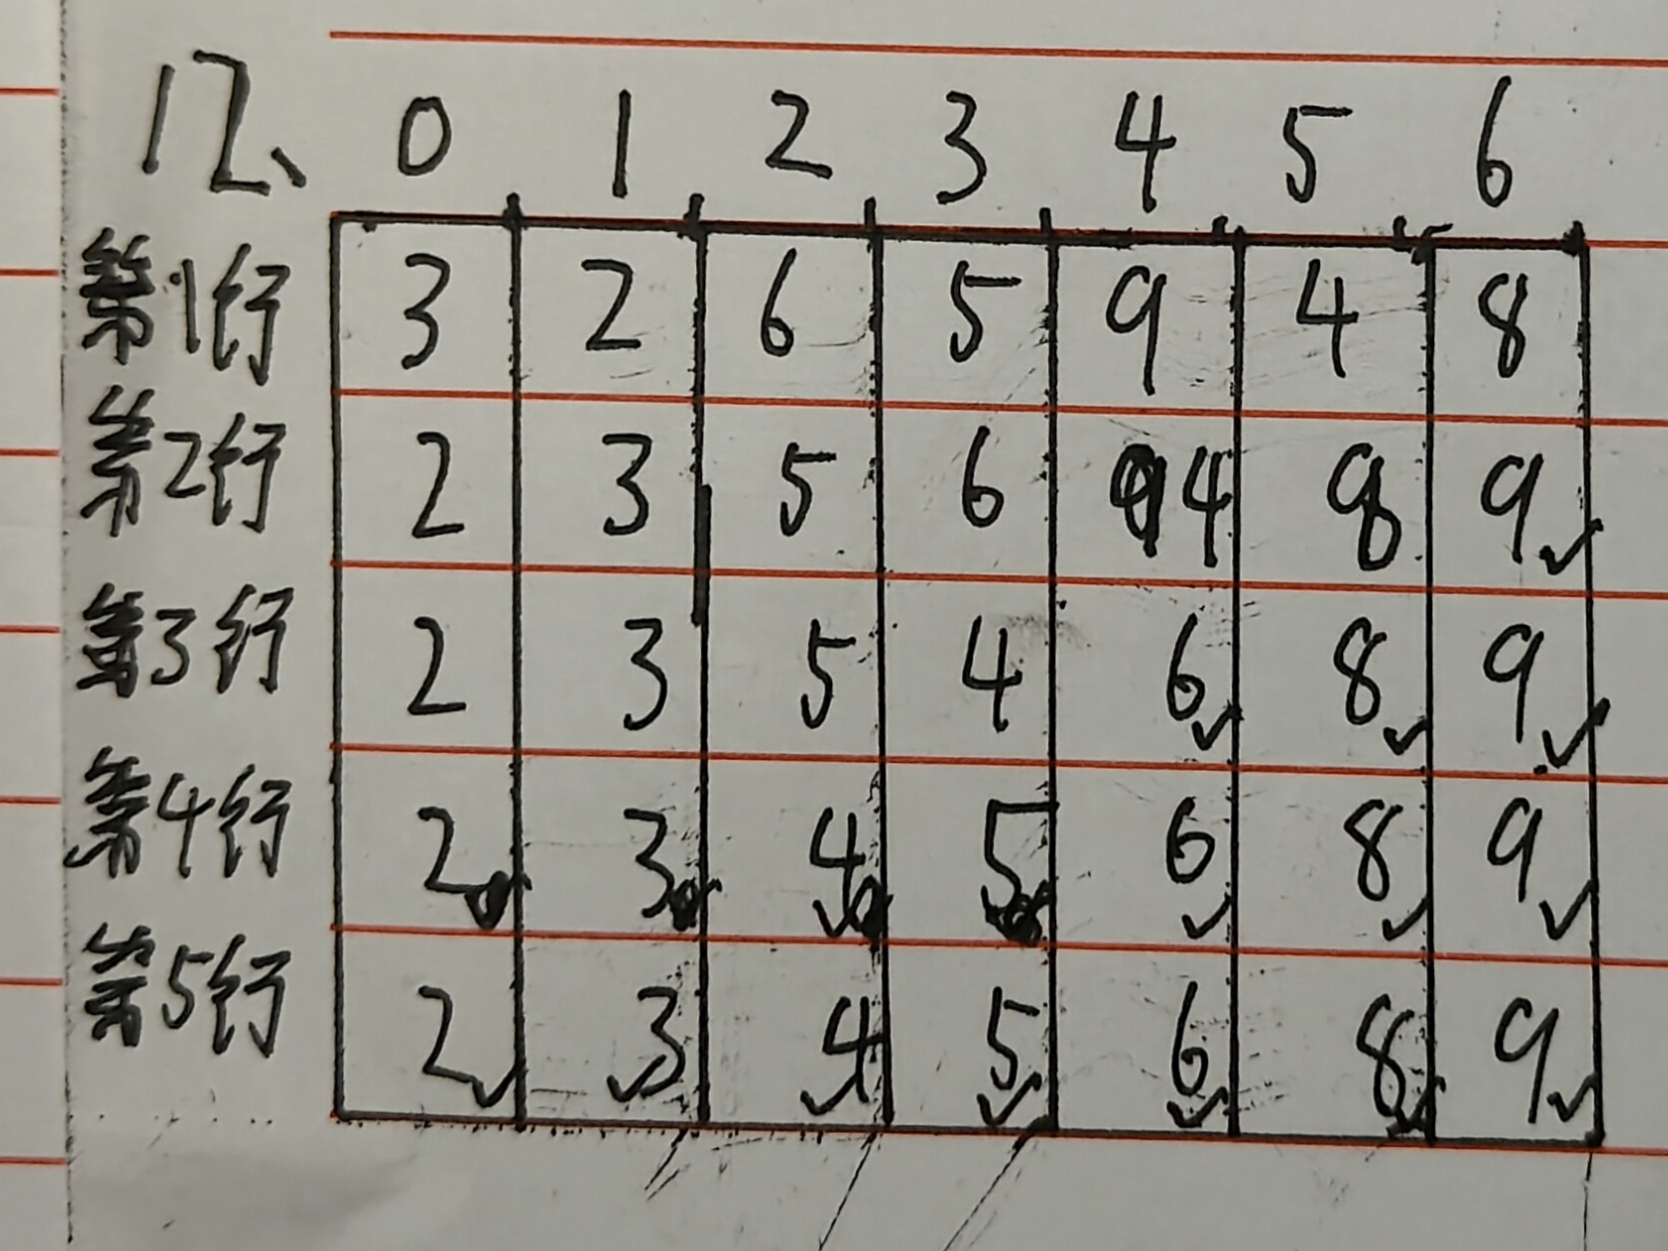 12、 0 1 2 3 4 5 6
第1行 3 2 6 5 9 4 8
第2行 2 3 5 6 4 8 9✓
第3行 2 3 5 4 6✓ 8✓ 9✓
第4行 2 3 4✓ 5 6✓ 8✓ 9✓
第5行 2✓ 3✓ 4✓ 5✓ 6✓ 8✓ 9✓